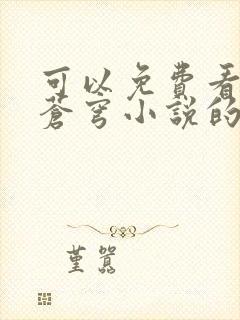 可以免費看
蒼穹小說的
堇嚣